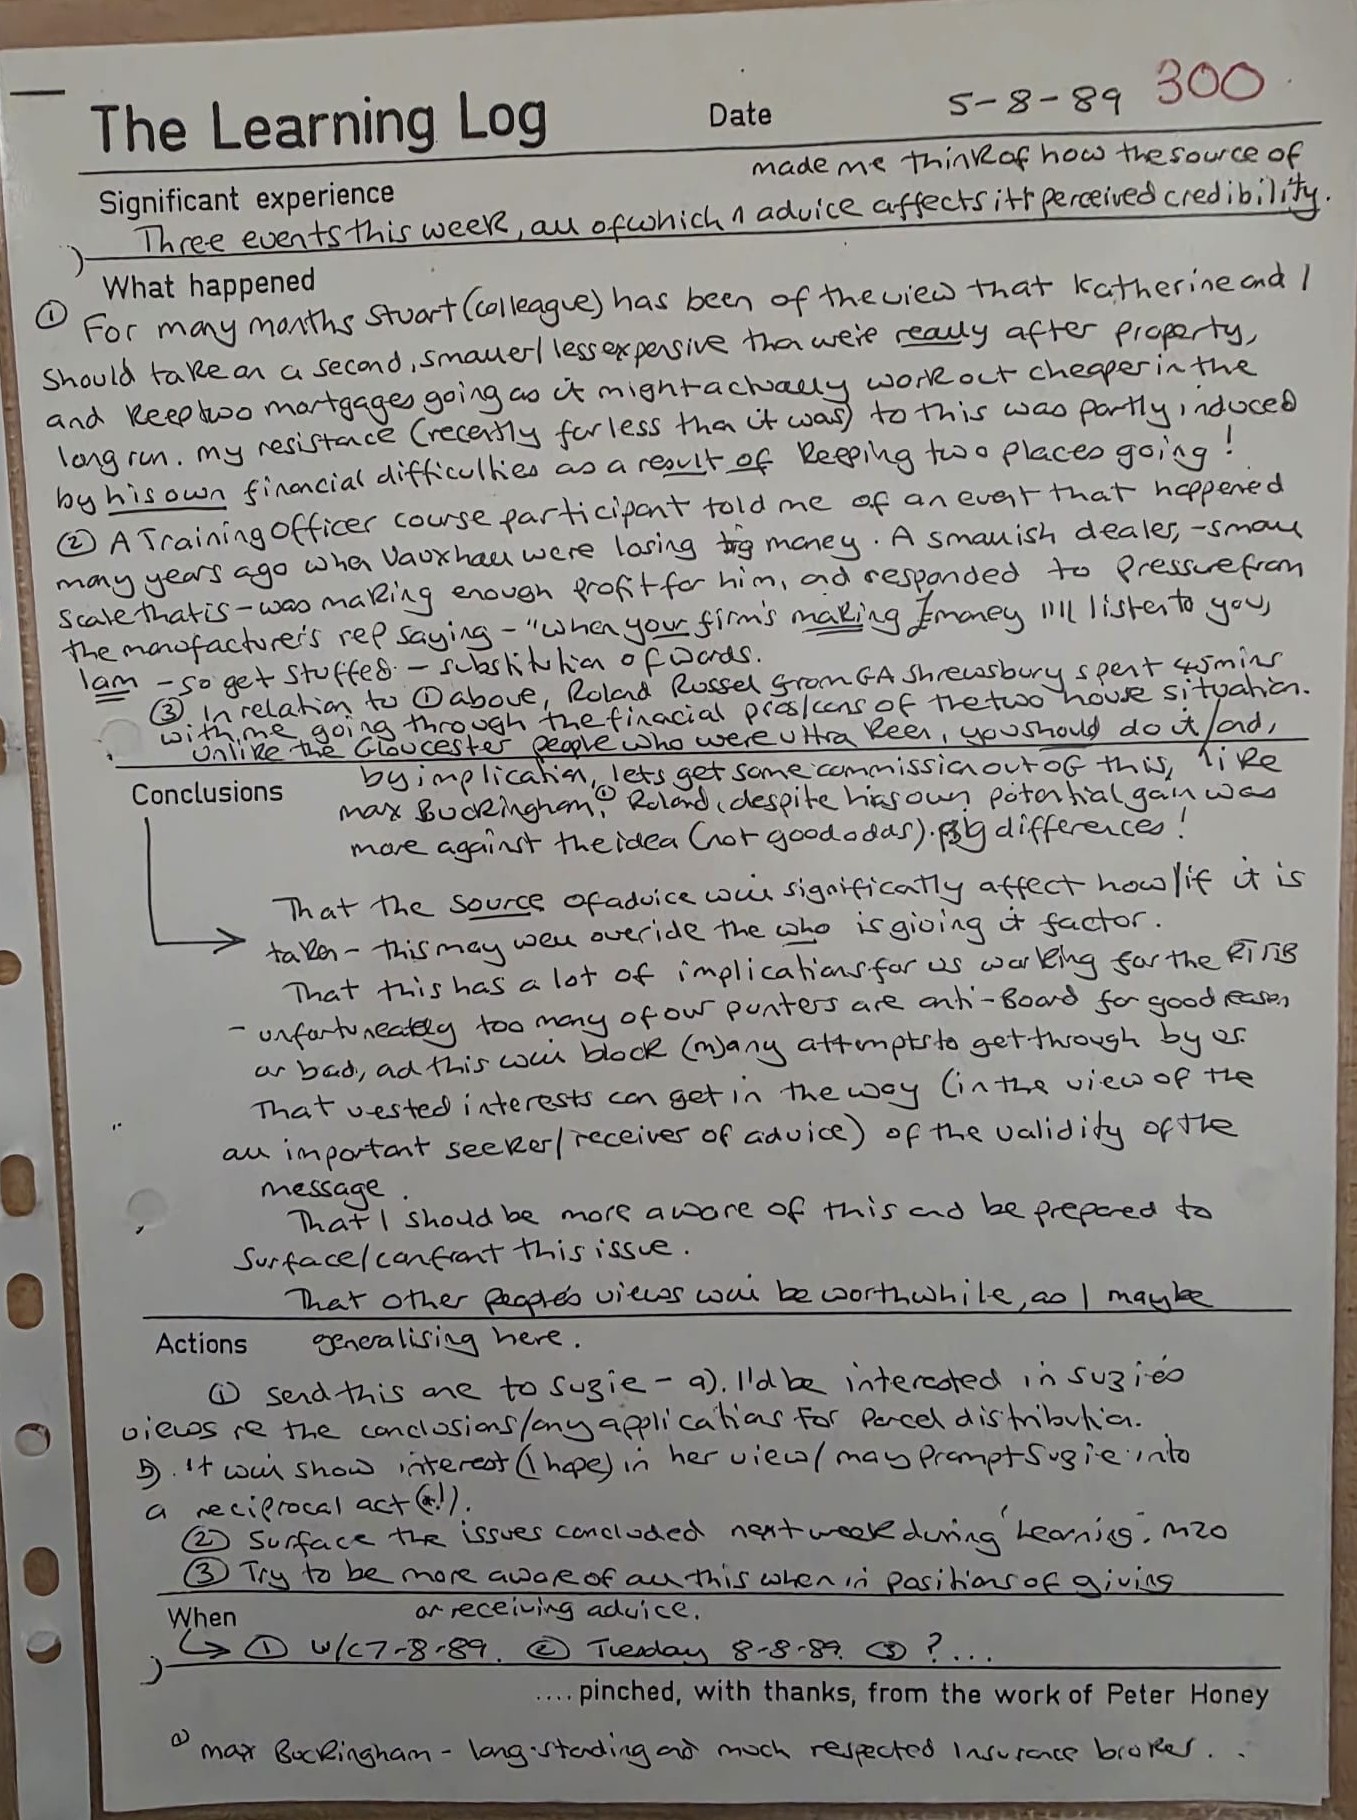 The Learning Log Date 5-8-89 300
made me think of how the source of
Significant experience
Three events this week, all of which ^ advice affects it's perceived credibility.
What happened
① For many months Stuart (colleague) has been of the view that Katherine and I
should take on a second, smaller/less expensive than we're really after property,
and keep two mortgages going as it might actually work out cheaper in the
long run. My resistance (recently far less than it was) to this was partly induced
by his own financial difficulties as a result of keeping two places going!
② A Training Officer course participant told me of an event that happened
many years ago when Vauxhall were losing big money. A smallish dealer, - small
scale that is - was making enough profit for him, and responded to pressure from
the manufacturer's rep saying - "when your firm's making money I'll listen to you,
I am - so get stuffed. - substitution of words.
③ In relation to ① above, Roland Russel from GA Shrewsbury spent 45 mins
with me going through the finacial pros/cons of the two house situation.
Unlike the Gloucester people who were ultra keen, you should do it/and,
by implication, lets get some commission out of this, like
Conclusions
Max Buckingham, ① Roland, despite his own potential gain was
more against the idea (not good odds). Big differences!
That the source of advice will significatly affect how/if it is
taken - this may well overide the who is giving it factor.
That this has a lot of implications for us working for the RTITB
- unfortuneately too many of our punters are anti-Board for good reason
or bad, and this will block (m)any attempts to get through by us.
That vested interests can get in the way (in the view of the
all important seeker/receiver of advice) of the validity of the
message.
That I should be more aware of this and be prepared to
surface/confront this issue.
That other people's views will be worthwhile, as I maybe
Actions generalising here.
① send this one to Suzie - a). I'd be interested in Suzie's
views re the conclusions/any applications for Parcel distribution.
b). It will show interest (I hope) in her view/may prompt Suzie into
a reciprocal act (!).
② Surface the issues concluded next week during 'Learning'. M20
③ Try to be more aware of all this when in positions of giving
or receiving advice.
When
① w/c 7-8-89. ② Tuesday 8-8-89. ③ ?...
.... pinched, with thanks, from the work of Peter Honey
① Max Buckingham - long-standing and much respected Insurance broker. . .